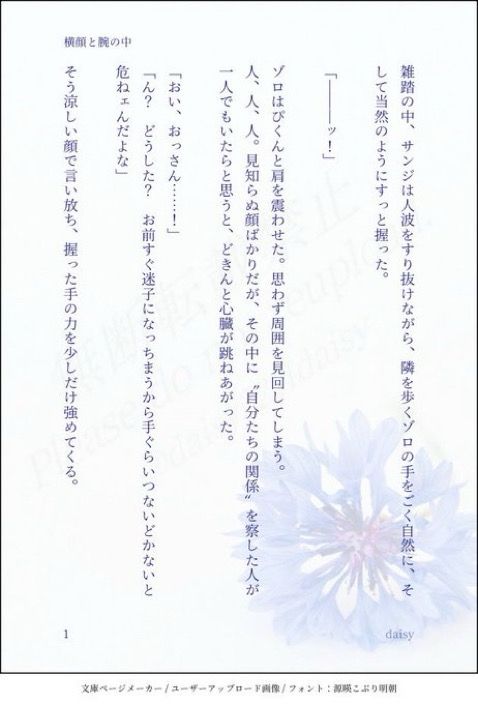 横顔と腕の中
雑踏の中、サンジは人波をすり抜けながら、隣を歩くゾロの手をごく自然に、そ
して当然のようにすっと握った。
「―――ッ！」
ゾロはぴくんと肩を震わせた。思わず周囲を見回してしまう。
人、人、人。見知らぬ顔ばかりだが、その中に〝自分たちの関係〟を察した人が
一人でもいたらと思うと、どきんと心臓が跳ねあがった。
「おい、おっさん……！」
「ん？　どうした？　お前すぐ迷子になっちまうから手ぐらいつないどかないと
危ねェんだよな」
そう涼しい顔で言い放ち、握った手の力を少しだけ強めてくる。
無断転載禁止
Please do not reupload
daisy
1
daisy
文庫ページメーカー / ユーザーアップロード画像 / フォント：源暎こぶり明朝